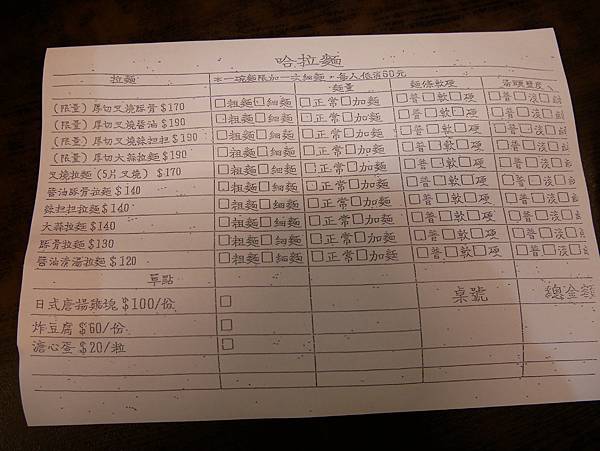 哈拉麵
拉麵 ※一碗麵限加一次細麵，每人低消60元
麵量 麵條軟硬 湯頭鹹度
(限量) 厚切叉燒豚骨 $170 □粗麵□細麵 □正常□加麵 □普□軟□硬 □普□淡□
(限量) 厚切叉燒醬油 $190 □粗麵□細麵 □正常□加麵 □普□軟□硬 □普□淡□
(限量) 厚切叉燒擔担 $190 □粗麵□細麵 □正常□加麵 □普□軟□硬 □普□淡□
(限量) 厚切大蒜拉麵 $190 □粗麵□細麵 □正常□加麵 □普□軟□硬 □普□淡□
叉燒拉麵 (5片叉燒) $170 □粗麵□細麵 □正常□加麵 □普□軟□硬 □普□淡□
醬油豚骨拉麵 $140 □粗麵□細麵 □正常□加麵 □普□軟□硬 □普□淡□
担担拉麵 $140 □粗麵□細麵 □正常□加麵 □普□軟□硬 □普□淡□
大蒜拉麵 $140 □粗麵□細麵 □正常□加麵 □普□軟□硬 □普□淡□
豚骨拉麵 $130 □粗麵□細麵 □正常□加麵 □普□軟□硬 □普□淡□
醬油清湯拉麵 $120 □粗麵□細麵 □正常□加麵 □普□軟□硬 □普□淡□
單點
日式唐揚雞塊 $100/份 □ 桌號 總金額
炸豆腐 $60/份 □
溏心蛋 $20/粒 □